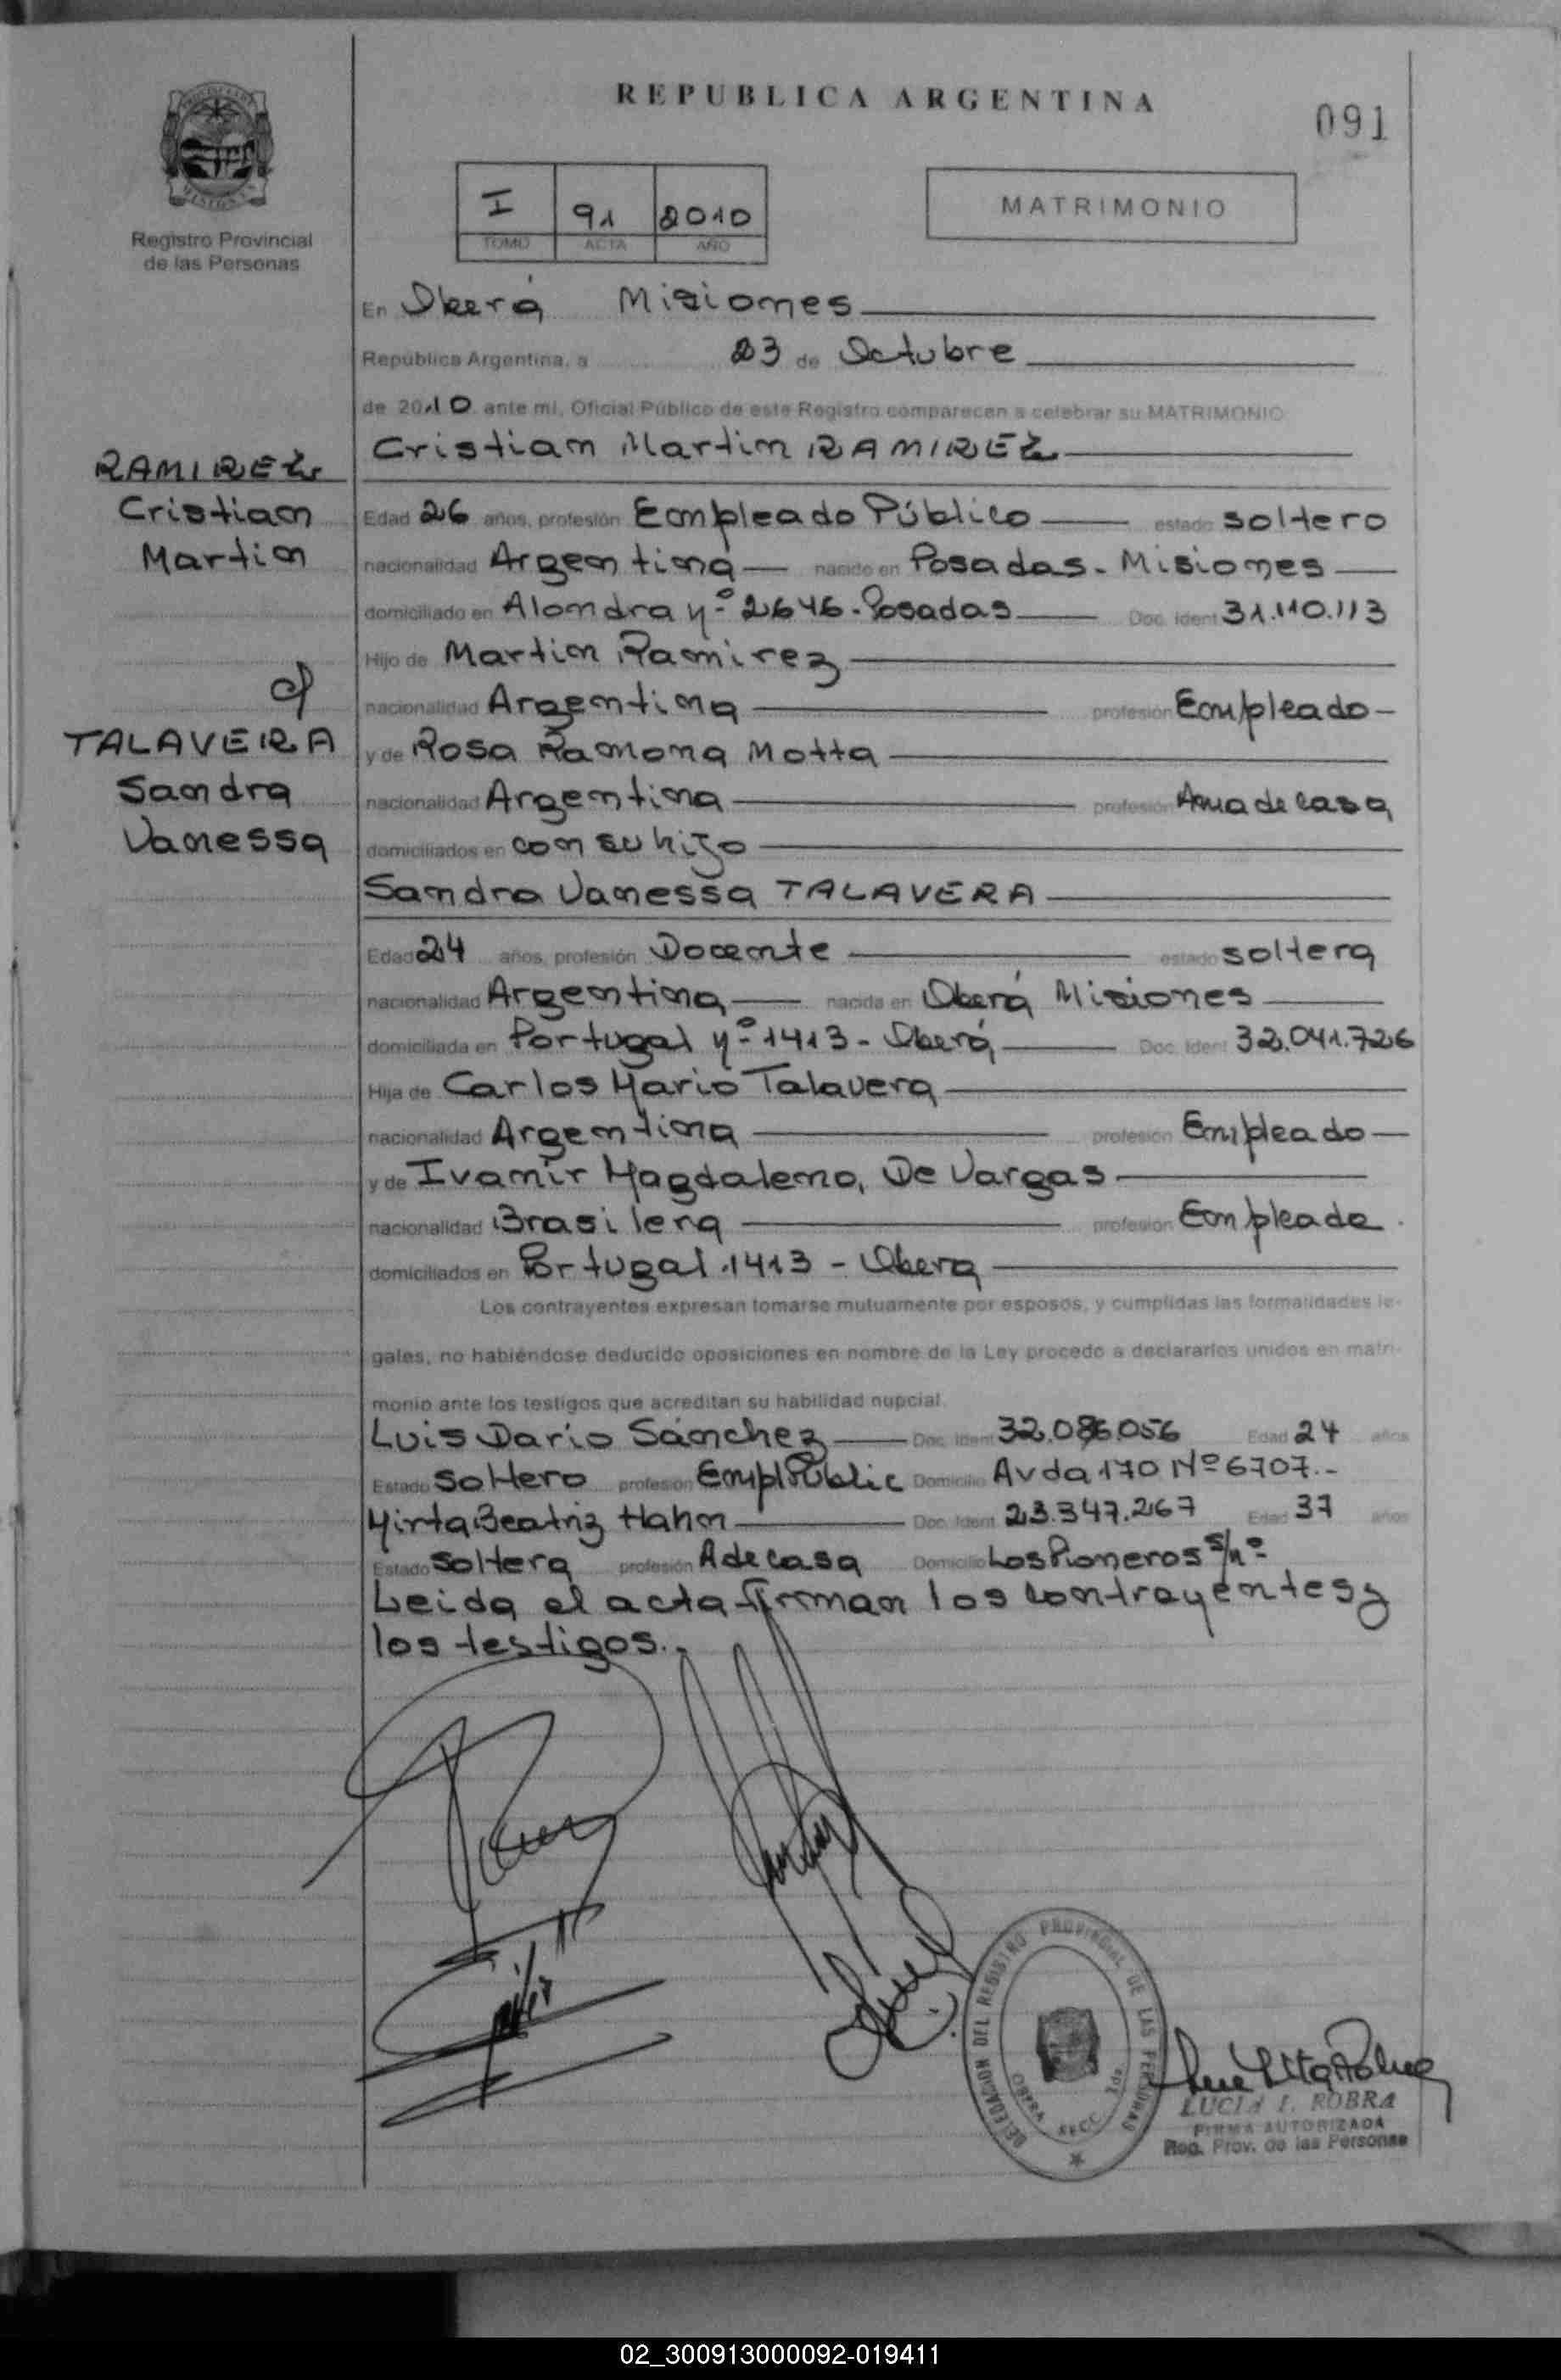 REPUBLICA ARGENTINA
091
I 91 2010
TOMO ACTA AÑO
MATRIMONIO
Registro Provincial
de las Personas
En Oberá Misiones
República Argentina, a 23 de Octubre
de 2010 ante mi, Oficial Público de este Registro comparecen a celebrar su MATRIMONIO
Cristian Martin RAMIREZ
RAMIREZ
Cristian
Martin
c/
TALAVERA
Sandra
Vanessa
Edad 26 años, profesión Empleado Público estado soltero
nacionalidad Argentina nacido en Posadas - Misiones
domiciliado en Alondra nº 2646 - Posadas Doc. Ident 31.110.113
Hijo de Martin Ramirez
nacionalidad Argentina profesión Empleado
y de Rosa Ramona Motta
nacionalidad Argentina profesión Ama de casa
domiciliados en con su hijo
Sandra Vanessa TALAVERA
Edad 24 años, profesión Docente estado soltera
nacionalidad Argentina nacida en Oberá Misiones
domiciliada en Portugal nº 1413 - Oberá Doc. Ident 32.041.726
Hija de Carlos Mario Talavera
nacionalidad Argentina profesión Empleado
y de Ivanir Magdalena De Vargas
nacionalidad Brasilera profesión Empleada
domiciliados en Portugal 1413 - Obera
Los contrayentes expresan tomarse mutuamente por esposos, y cumplidas las formalidades le-
gales, no habiéndose deducido oposiciones en nombre de la Ley procedo a declararlos unidos en matri-
monio ante los testigos que acreditan su habilidad nupcial.
Luis Dario Sánchez Doc. Ident 32.086.056 Edad 24 años
Estado Soltero profesión Empl Públic Domicilio Avda 170 Nº 6707.-
Mirta Beatriz Hahn Doc. Ident 23.347.267 Edad 37 años
Estado Soltera profesión A de casa Domicilio Los Pioneros s/nº
Leida el acta firman los contrayentes y
los testigos.-
DELEGACION DEL REGISTRO PROVINCIAL DE LAS PERSONAS
OBERA SECC. 2da
LUCIA I. ROBRA
FIRMA AUTORIZADA
Reg. Prov. de las Personas
02_300913000092-019411